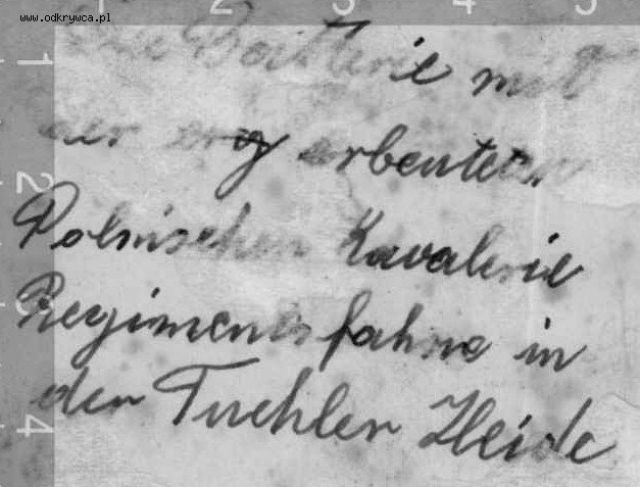 www.odkrywca.pl
1 2 3 4 5
Battlerie mit
der erbeuteten
Polnischen Kavalerie
Regimentsfahne in
der Tuchler Heide
2
3
4